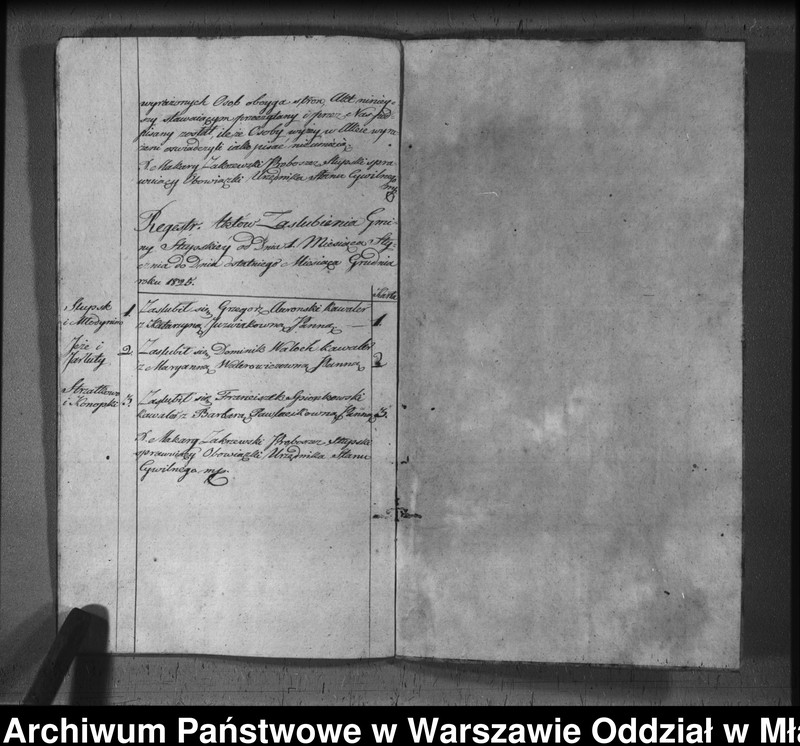 wyrażonych Osob oboyga stron, Akt ninieyszy stawaiącym przeczytany i przez Nas podpisany został ileże Osoby wyżey w Akcie wyrażeni oświadczyli iako pisać nieumieią.
X. Makary Zakrzewski Proboszcz Stupski sprawuiący Obowiązki Urzędnika Stanu Cywilnego
mp
Regestr Aktów Zaslubienia Gminy Stupskiéy od Dnia 1 Miesiąca Stycznia do Dnia ostatniego Miesiąca Grudnia roku 1825.
Karta
Stupsk i Młodynin 1. Zaslubił się Grzegorz Aaronski Kawaler z Katarzyną Juzwiakowną Panną — 1.
Jeże i Parluty 2. Zaslubił się Dominik Waloch Kawaler z Maryanną Walerowiczowną Panną 2
Strzałkowo i Konopki 3. Zaslubił się Franciszek Spionkowski Kawaler z Barbarą Pawlacikowną Panną 3.
X. Makary Zakrzewski Proboszcz Stupski sprawuiący Obowiązki Urzędnika Stanu Cywilnego mp.
Archiwum Państwowe w Warszawie Oddział w Mła